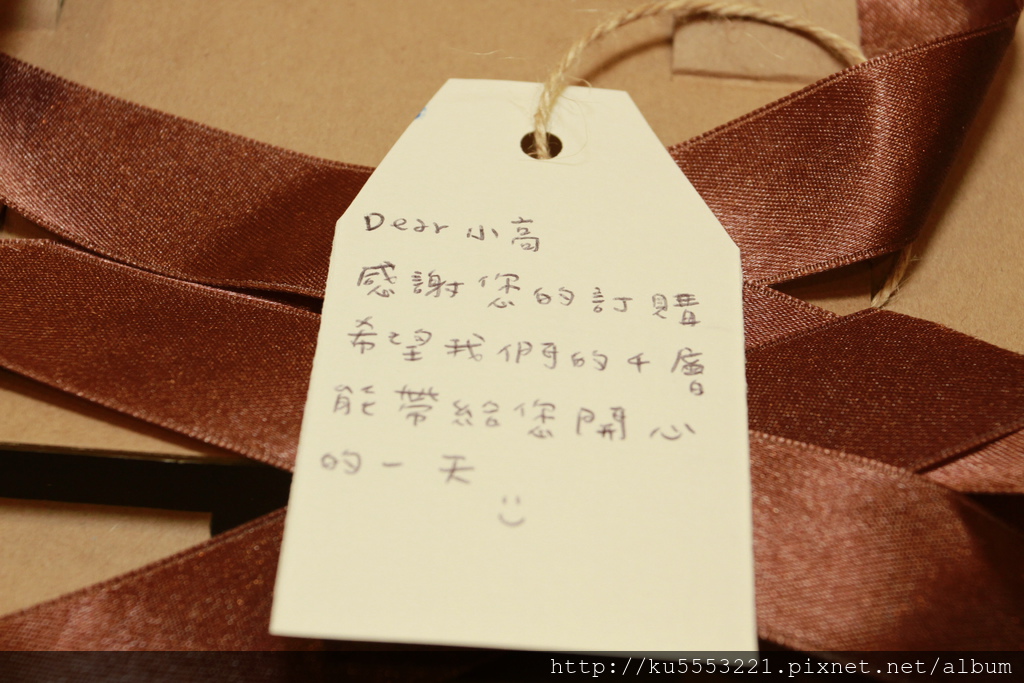 Dear 小高
感謝您的訂購
希望我們的千層
能帶給您開心
的一天
http://ku5553221.pixnet.net/album